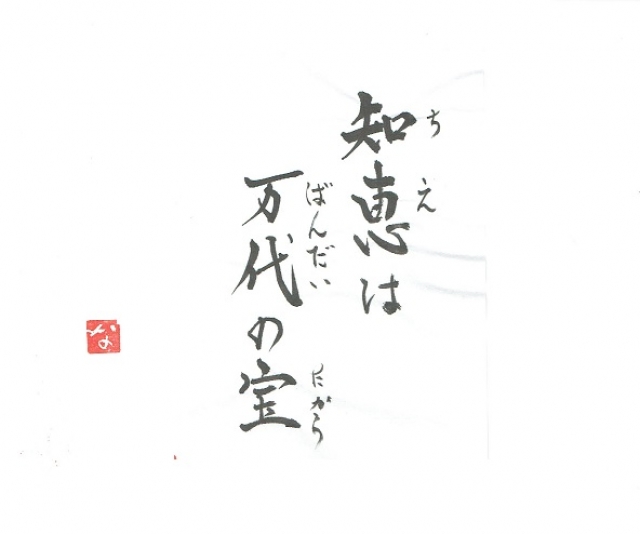 知恵は
ちえ
万代の宝
ばんだい
たから